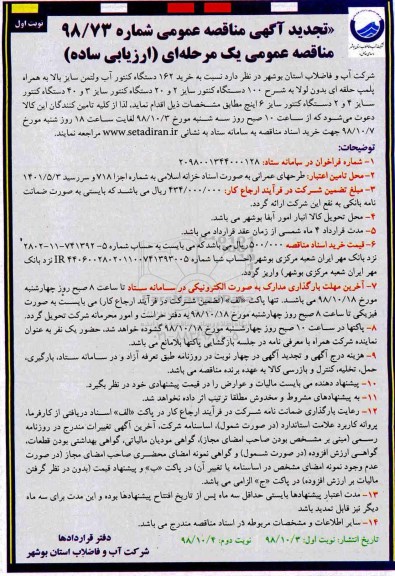 نوبت اول
«تجدید آگهی مناقصه عمومی شماره ۹۸/۷۳
مناقصه عمومی یک مرحله‌ای (ارزیابی ساده)
شرکت آب و فاضلاب استان بوشهر در نظر دارد نسبت به خرید ۱۶۲ دستگاه کنتور آب ولتمن سایز بالا به همراه
پلمپ حلقه ای بدون لولا به شرح ۱۰۰ دستگاه کنتور سایز ۲ و ۲۰ دستگاه کنتور سایز ۳ و ۴۰ دستگاه کنتور
سایز ۴ و ۲ دستگاه کنتور سایز ۶ اینچ مطابق مشخصات ذیل اقدام نماید. لذا از کلیه تامین کنندگان این کالا
دعوت می‌شود که از ساعت ۱۰ صبح روز سه شنبه مورخ ۹۸/۱۰/۳ لغایت ساعت ۱۸ روز شنبه مورخ
۹۸/۱۰/۷ جهت خرید اسناد مناقصه به سامانه ستاد به نشانی www.setadiran.ir مراجعه نمایند.
توضیحات:
۱- شماره فراخوان در سامانه ستاد: ۲۰۹۸۰۰۱۳۴۴۰۰۰۱۲۸
۲- محل تامین اعتبار: طرحهای عمرانی به صورت اسناد خزانه اسلامی به شماره اجرا ۷۱۸ و سررسید ۱۴۰۱/۵/۳
۳- مبلغ تضمین شرکت در فرآیند ارجاع کار: ۴۳۴/۰۰۰/۰۰۰ ریال می باشد که بایستی به صورت ضمانت
نامه بانکی به نفع این شرکت ارائه گردد.
۴- محل تحویل کالا انبار امور آبفا بوشهر می باشد.
۵- مدت قرارداد ۴ ماه شمسی از زمان عقد قرارداد می باشد.
۶- قیمت خرید اسناد مناقصه ۵۰۰/۰۰۰ ریال می باشد که می بایست به حساب شماره
نزد بانک مهر ایران شعبه مرکزی بوشهر (حساب شبا شماره IR نزد بانک
مهر ایران شعبه مرکزی بوشهر) واریز گردد.
۷- آخرین مهلت بارگذاری مدارک به صورت الکترونیکی در سامانه ستاد تا ساعت ۸ صبح روز چهارشنبه
مورخ ۹۸/۱۰/۱۸ می باشد. تنها پاکت «الف» (تضمین شرکت در فرآیند ارجاع کار) می بایست به صورت
فیزیکی تا ساعت ۸ صبح روز چهارشنبه مورخ ۹۸/۱۰/۱۸ به دفتر حراست و امور محرمانه شرکت تحویل گردد.
۸- پاکتها در ساعت ۱۰ صبح روز چهارشنبه مورخ ۹۸/۱۰/۱۸ گشوده خواهد شد. حضور یک نفر به عنوان
نماینده شرکت همراه با معرفی نامه در جلسه بازگشایی پاکتها بلامانع می باشد.
۹- هزینه درج آگهی و تجدید آگهی در چهار نوبت در روزنامه طبق تعرفه آزاد و در سامانه ستاد، بارگیری،
حمل، تخلیه، کنترل و بازرسی کالا به عهده برنده مناقصه می باشد.
۱۰- پیشنهاد دهنده می بایست مالیات و عوارض را در قیمت پیشنهادی خود در نظر بگیرد.
۱۱- به پیشنهادهای مشروط و مخدوش مطلقا ترتیب اثر داده نخواهد شد.
۱۲- رعایت بارگذاری ضمانت نامه شرکت در فرآیند ارجاع کار در پاکت «الف» اسناد دریافتی از کارفرما،
پروانه کاربرد علامت استاندارد (در صورت شمول)، اساسنامه شرکت، آخرین آگهی تغییرات مندرج در روزنامه
رسمی (مبنی بر مشخص بودن صاحب امضای مجاز)، گواهی مودیان مالیاتی، گواهی بهداشتی بودن قطعات،
گواهی ارزش افزوده (در صورت شمول) و گواهی نمونه امضای محضری صاحب امضای مجاز (در صورت
عدم وجود نمونه امضای مشخص در اساسنامه یا تغییر آن) در پاکت «ب» و پیشنهاد قیمت (بدون در نظر گرفتن
مالیات بر ارزش افزوده) در پاکت «ج» الزامی می باشد.
۱۳- مدت اعتبار پیشنهادها بایستی حداقل سه ماه پس از تاریخ افتتاح پیشنهادها بوده و این مدت برای سه ماه
دیگر نیز قابل تمدید باشد
۱۴- سایر اطلاعات و مشخصات مربوطه در اسناد مناقصه مندرج می باشد.
تاریخ انتشار: نوبت اول: ۹۸/۱۰/۳ نوبت دوم: ۹۸/۱۰/۴
دفتر قراردادها
شرکت آب و فاضلاب استان بوشهر